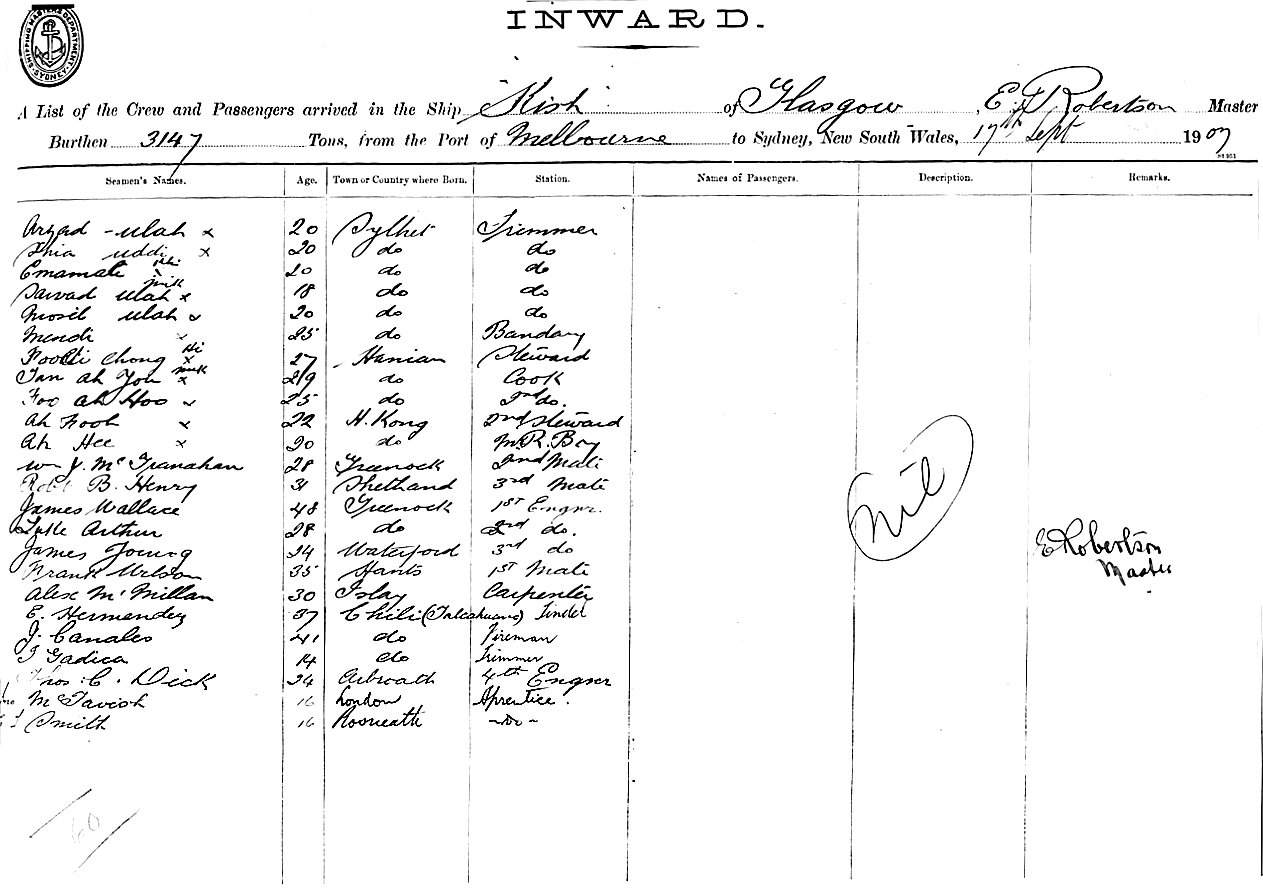 INWARD.
SHIPPING MASTERS DEPARTMENT SYDNEY
A List of the Crew and Passengers arrived in the Ship "Kish" of Glasgow, E. J. Robertson Master
Burthen 3147 Tons, from the Port of Melbourne to Sydney, New South Wales, 17th Sept 1907
Seamen's Names. Age. Town or Country where Born. Station. Names of Passengers. Description. Remarks.
ulah x 20 Sylhet Trimmer
uddi x 20 do do
Emamali 20 do do
ulah x 18 do do
Mosil ulah x 20 do do
25 do Bandary
Chong x 27 Hanian Steward
Tan ah You x 29 do Cook
Foo ah Hoo x 25 do do.
Ah Fooh x 22 H. Kong 2nd Steward
Ah Hee x 20 do M.R. Boy
Wm J. McGranahan 28 Greenock 2nd Mate
Robt B. Henry 31 Shetland 3rd Mate
James Wallace 48 Greenock 1st Engnr.
Arthur 28 do 2nd do.
James Young 24 Waterford 3rd do
Frank Wilson 35 Hants 1st Mate
Alex McMillan 30 Islay Carpenter
E. Hermendez 37 Chili (Talcahuano)
J. Canales 41 do Fireman
Gadica 14 do Trimmer
Thos. C. Dick 24 Arbroath 4th Engnr
McTavish 16 London Aprentice.
Smith 16 Rosneath - Do -
nil
E Robertson
Master
60